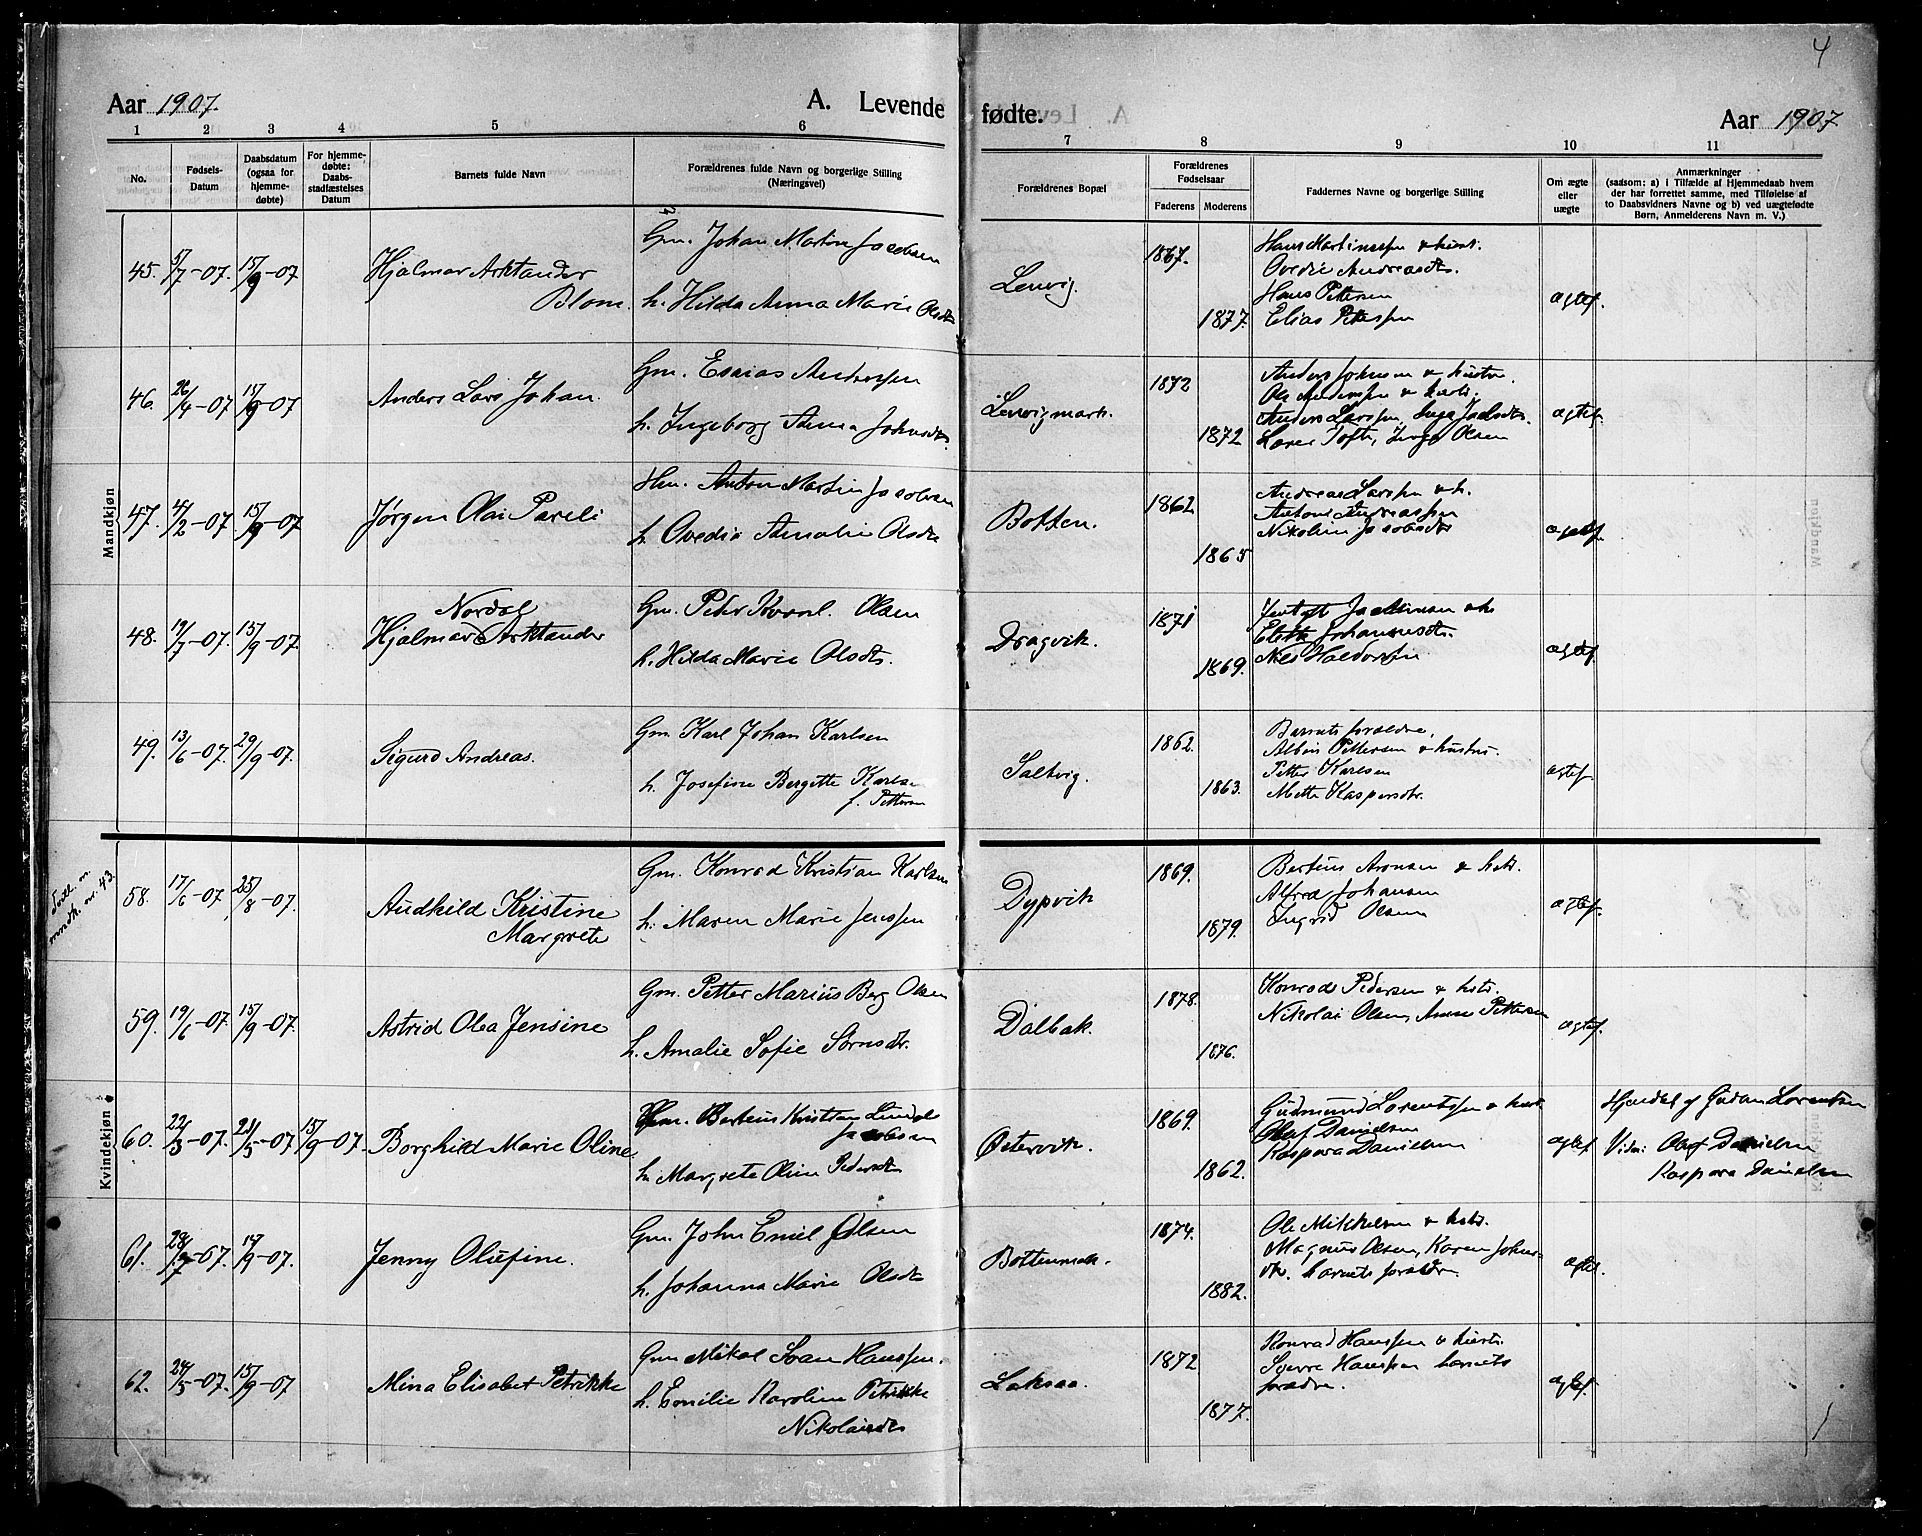 4
Aar 1907.
A. Levende
fødte.
Aar 1907
1 2 3 4 5 6 7 8 9 10 11
No.
Fødsels-
Datum
Daabsdatum
(ogsaa for
hjemme-
døbte)
For hjemme-
døbte:
Daabs-
stadfæstelses
Datum
Barnets fulde Navn
Forældrenes fulde Navn og borgerlige Stilling
(Næringsvei)
Forældrenes Bopæl
Forældrenes
Fødselsaar
Faderens Moderens
Faddernes Navne og borgerlige Stilling
Om ægte
eller
uægte
Anmærkninger
(saasom: a) i Tilfælde af Hjemmedaab hvem
der har forrettet samme, med Tilføielse af
to Daabsvidners Navne og b) ved uægtefødte
Børn, Anmelderens Navn m. V.)
Mandkjøn
45. 5/7-07. 15/9-07
Hjalmar Arktander
Blom.
Gm. Johan Martin Jacobsen
h. Hilda Anna Marie Olsdtr
Lenvig.
1867.
1877.
Hans Martinessen & hust.
Ovedie Andreasdtr.
Hans Pettersen
Elias Petersen
ægtef.
46. 26/4-07 15/9-07
Anders Lars Johan.
Gm. Esaias Andersen
h. Ingeborg Anna Johnsdtr
Lenvigmark.
1872
1872
Anders Johnsen & hustru.
Ole Anderssen & hust.
Anders Larssen,
Olsen
ægtef.
47. 4/2-07 15/9-07
Jørgen Olai Pareli
Hm. Anton Martin Jacobsen
h. Ovedia Amalie Olsdtr
Botten.
1862
1865
Andreas Larssen & h.
Antone Andreassen
Nikoline Jacobsdtr
ægtef.
48. 19/7-07. 15/9-07.
Nordal
Hjalmar Arktander
Gm. Peter Kornel. Olsen
h. Hilda Marie Olsdtr.
Dragvik.
1871
1869.
Jentoft & h.
Johannesdtr.
Nils Haldorsen
ægtef.
49. 13/6-07. 29/9-07.
Sigurd Andreas.
Gm Karl Johan Karlsen
h. Josefine Bergitte Karlsen
f. Pettersen
Saltvig.
1862.
1863.
Barnets forældre,
Albin Pettersen & hustru.
Petter Karlsen
Mette Kaspersdtr.
ægtef.
Kvindekjøn
58. 17/6-07 25/8-07.
Audhild Kristine
Margrete
Gm. Konrad Kristian Karlsen
h. Maren Marie Jenssen
Dypvik
1869.
1879.
Bertius Aronsen & hust.
Alfred Johansen
Ingrid Olsen
ægtef.
59. 19/6-07 15/9-07.
Astrid Olea Jensine
Gm. Petter Marius Berg Olsen
h. Amalie Sofie Sørnsdtr.
Dalbak.
1878.
1876.
Konrad Pedersen & hust.
Nikolai Olsen, Anne Pettersen
ægtef.
60. 22/3-07. 21/5-07 15/9-07.
Borghild Marie Oline
Gm. Berteus Kristian Lundal
Jacobsen
h. Margrete Oline Pedersdtr
Østervik.
1869.
1862.
Gudmund Lorentsen & hust.
Olaf Danielsen
Kaspara Danielsen
ægtef.
Hjemdøbt af Gudm Lorentsen
Vidn: Olaf Danielsen
Kaspara Danielsen
61. 28/7-07. 15/9-07.
Jenny Olufine.
Gm. John Emil Olsen
h. Johanna Marie Olsdtr
Bottenmark.
1874.
1882.
Ole Mikkelsen & hust.
Magnus Olsen, Karen Johns-
dtr. barnets forældre
ægtef.
62. 24/5-07. 15/9-07
Mina Elisabet Petrikke
Gm Mikal Svan Hanssen.
h. Emilie Karoline Petrikke
Nikolaisdtr
Laksaa.
1872
1877.
Konrad Hanssen & hust.
Sverre Hanssen barnets
forældre.
ægtef.